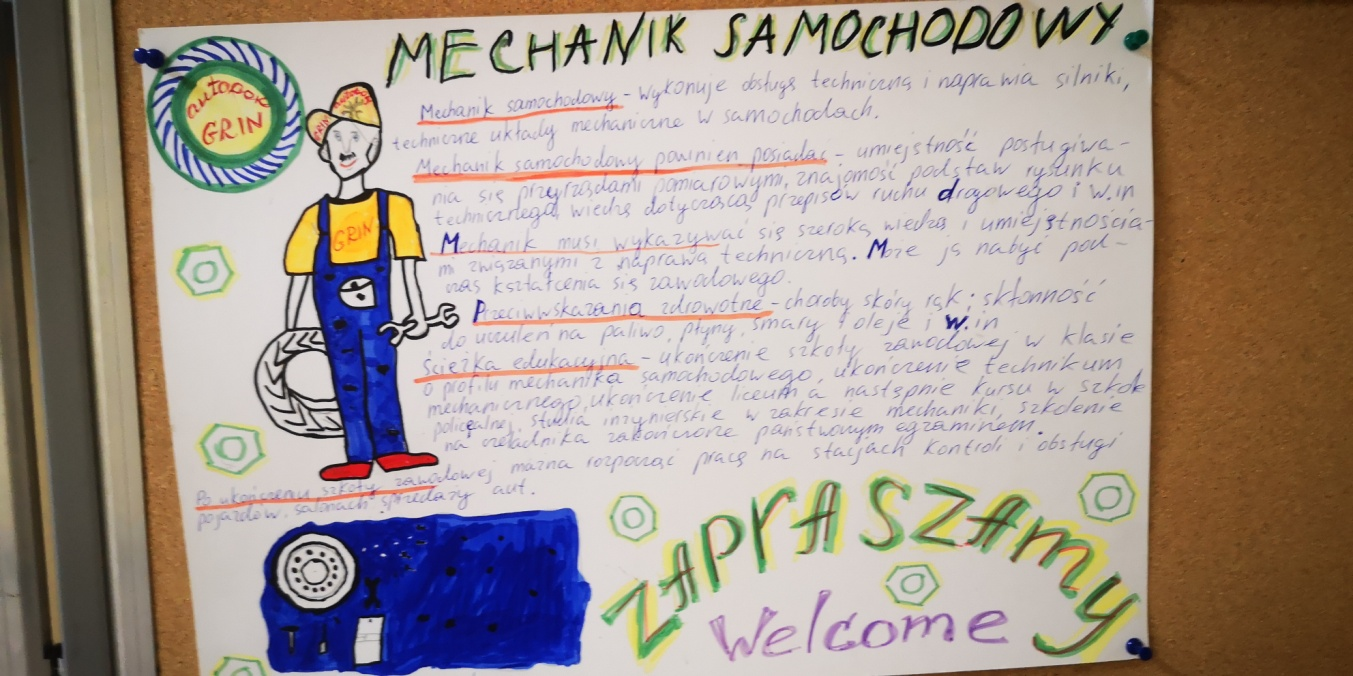 MECHANIK SAMOCHODOWY
autodok
GRIN
GRIN
GRIN
Mechanik samochodowy - wykonuje obsługę techniczną i naprawia silniki,
techniczne układy mechaniczne w samochodach.
Mechanik samochodowy powinien posiadać - umiejstność posługiwa-
nia się przyrządami pomiarowymi, znajomość podstaw rysunku
technicznego, wiedzę dotyczącą przepisów ruchu drogowego i w.in
Mechanik musi wykazywać się szeroką wiedzą i umiejętnościa-
mi związanymi z naprawą techniczną. Może ją nabyć pod-
czas kształcenia się zawodowego.
Przeciwwskazania zdrowotne - choroby skóry rąk; skłonność
do uczuleń na paliwo, płyny, smary i oleje i w.in
Ścieżka edukacyjna - ukończenie szkoły zawodowej w klasie
o profilu mechanika samochodowego, ukończenie technikum
mechanicznego, ukończenie liceum a następnie kursu w szkole
policealnej, studia inżynierskie w zakresie mechaniki, szkolenie
na czeladnika zakończone państwowym egzaminem.
Po ukończeniu szkoły zawodowej można rozpocząć pracę na stacjach kontroli i obsługi
pojazdów, salonach sprzedaży aut.
ZAPRASZAmy
Welcome